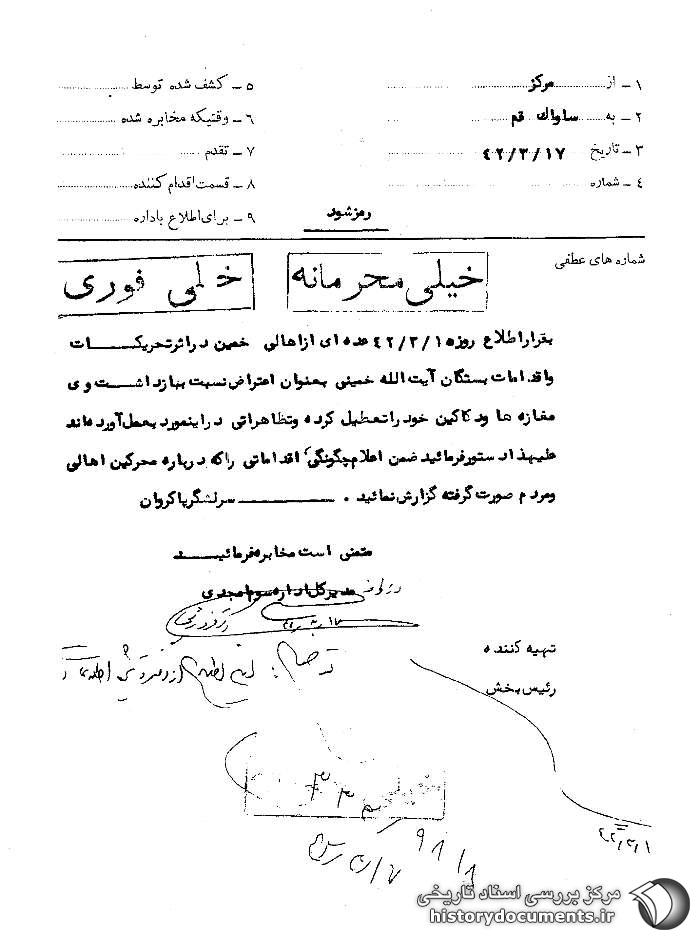 ۱ – از مرکز
۲ – به ساواك قم
۳ – تاریخ ۴۲/۳/۱۷
۴ – شماره
۵ – کشف شده توسط
۶ – وقتیکه مخابره شده
۷ – تقدم
۸ – قسمت اقدام کننده
۹ – برای اطلاع باداره
رمز شود
شماره های عطفی
خیلی محرمانه
خیلی فوری
بقرار اطلاع روز ۴۲/۳/۱۵ عده ای از اهالی خمین در اثر تحریکات
و اقدامات بستگان آیت الله خمینی بعنوان اعتراض نسبت ببازداشت وی
مغازه ها و دکاکین خود را تعطیل کرده و تظاهراتی در اینمورد بعمل آورده اند
علیهذا دستور فرمائید ضمن اعلام چگونگی اقداماتی را که درباره محرکین اهالی
و مردم صورت گرفته گزارش نمائید . سرلشگر پاکروان
متمنی است مخابره فرمائید
مدیر کل اداره سوم امجدی
تهیه کننده
رئیس بخش
مرکز بررسی اسناد تاریخی
historydocuments.ir